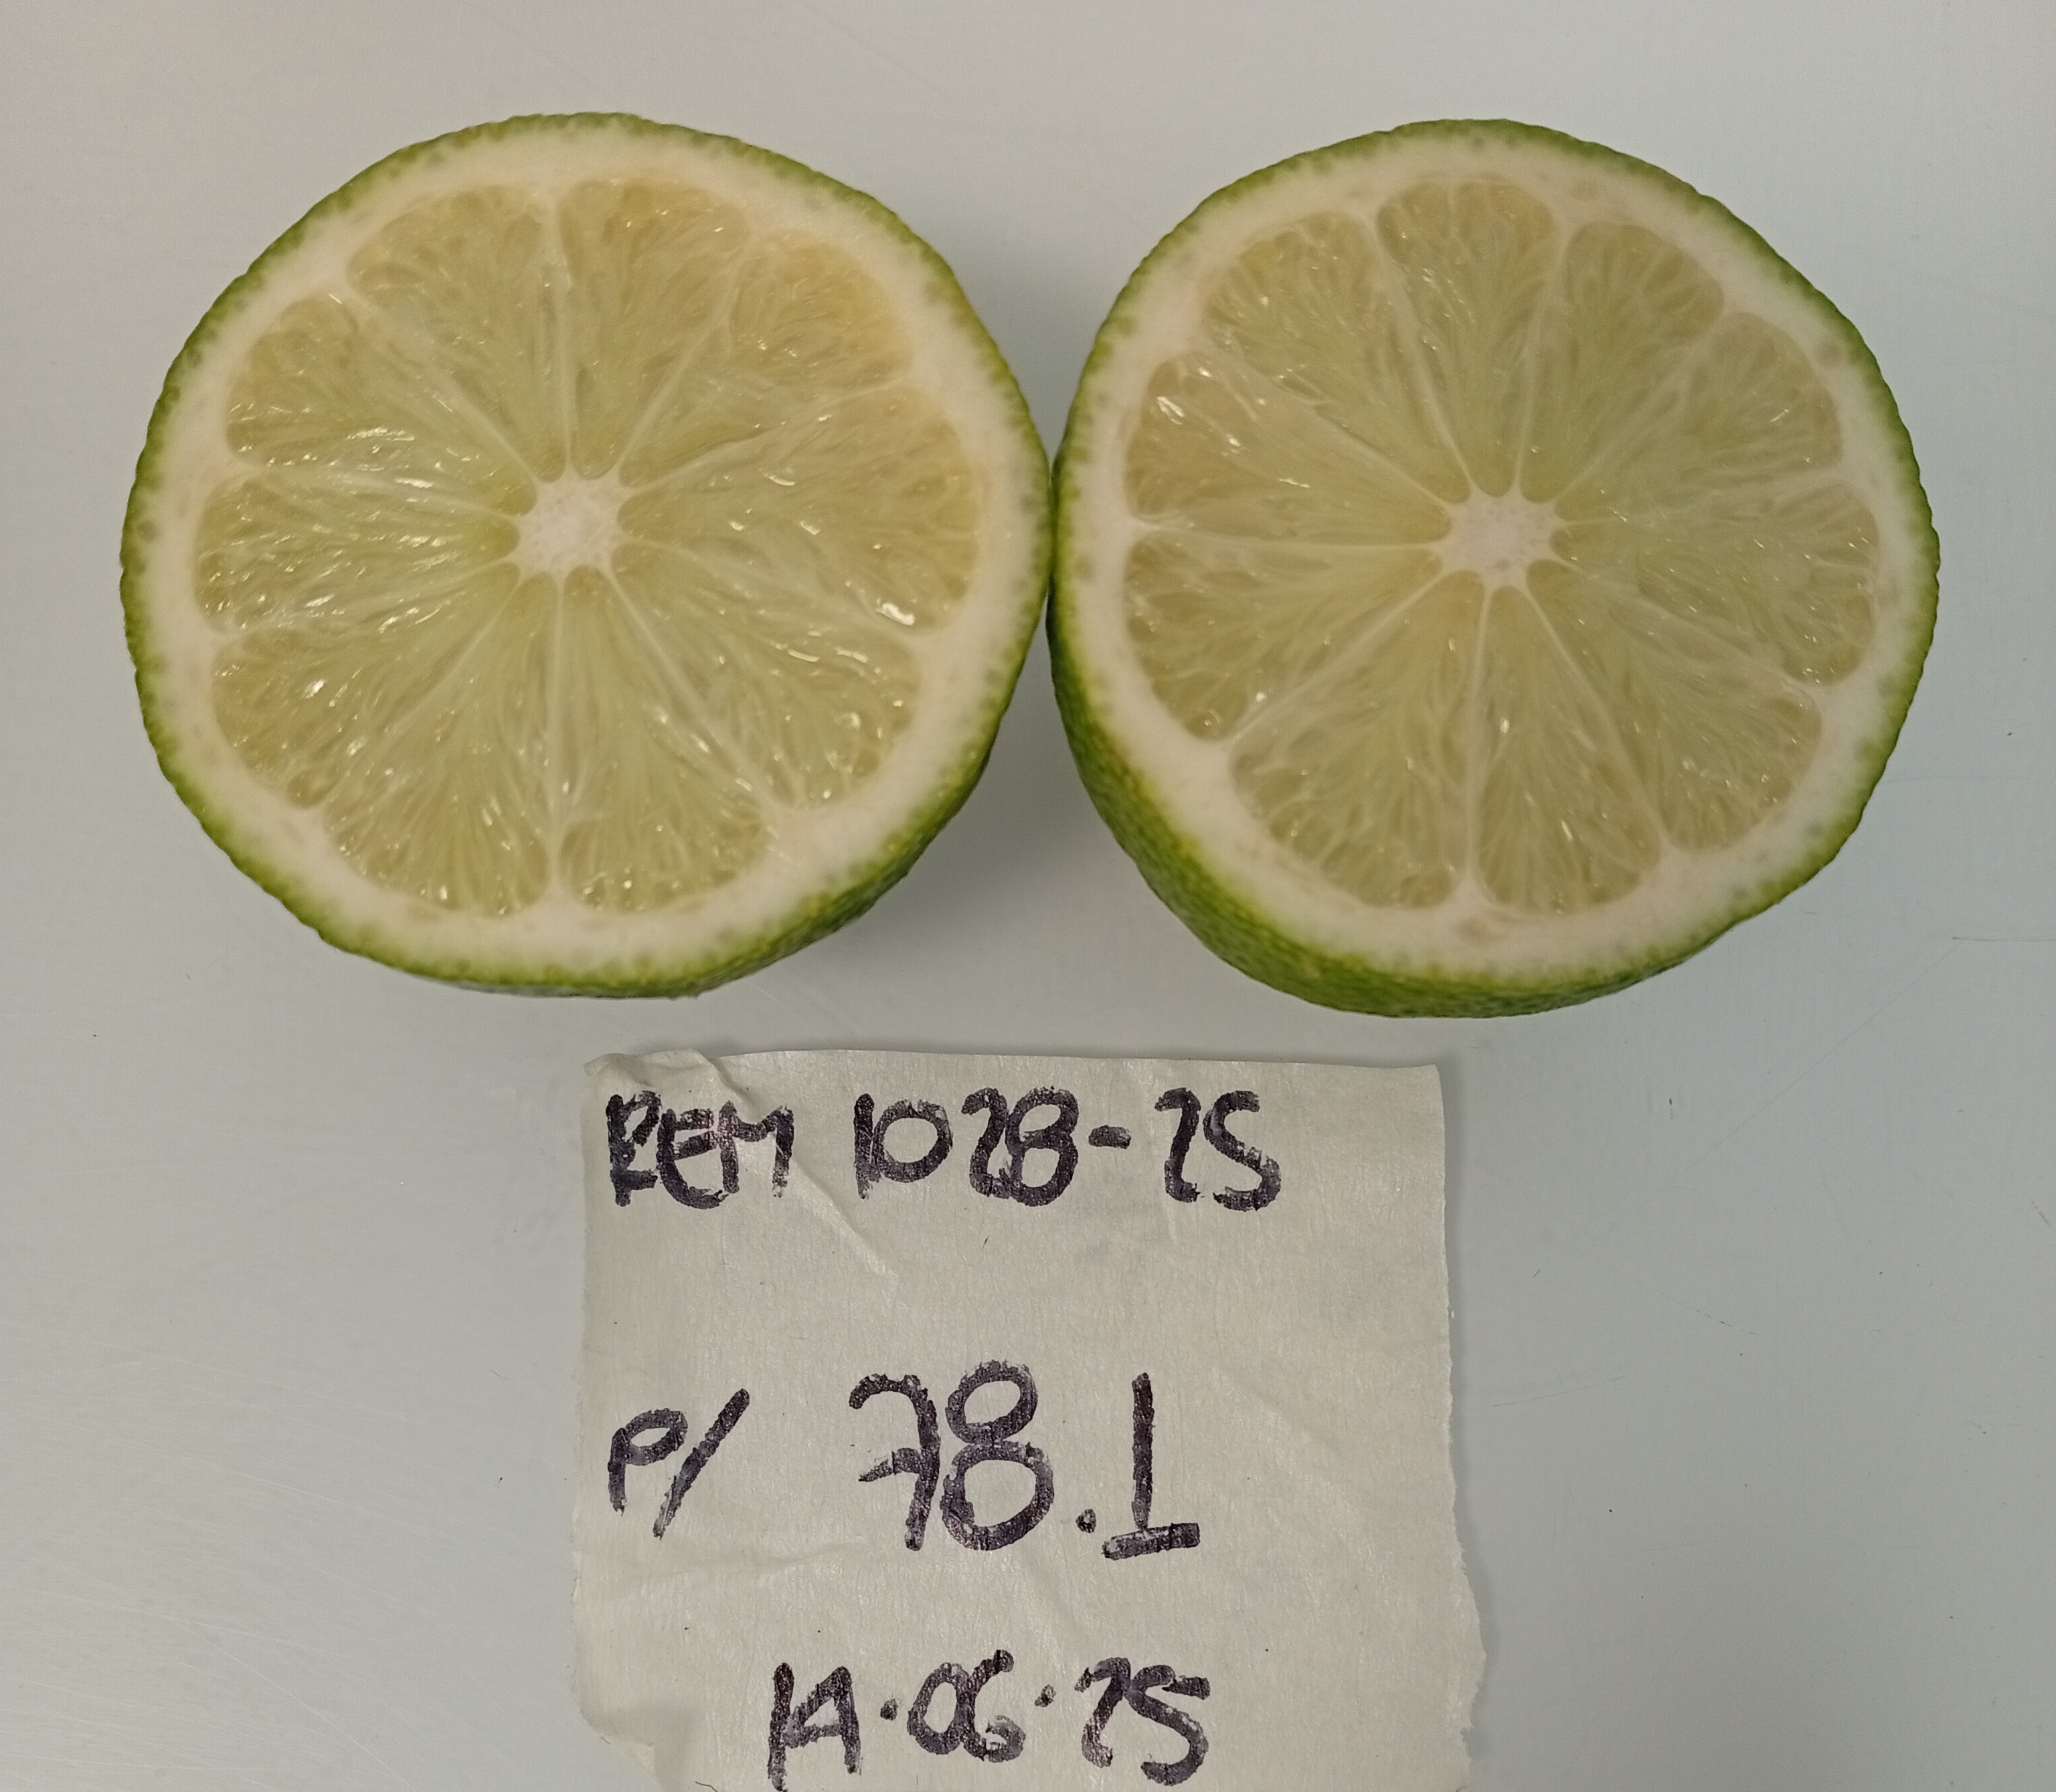 REM 1028-25
P/ 78.1
14.06.25